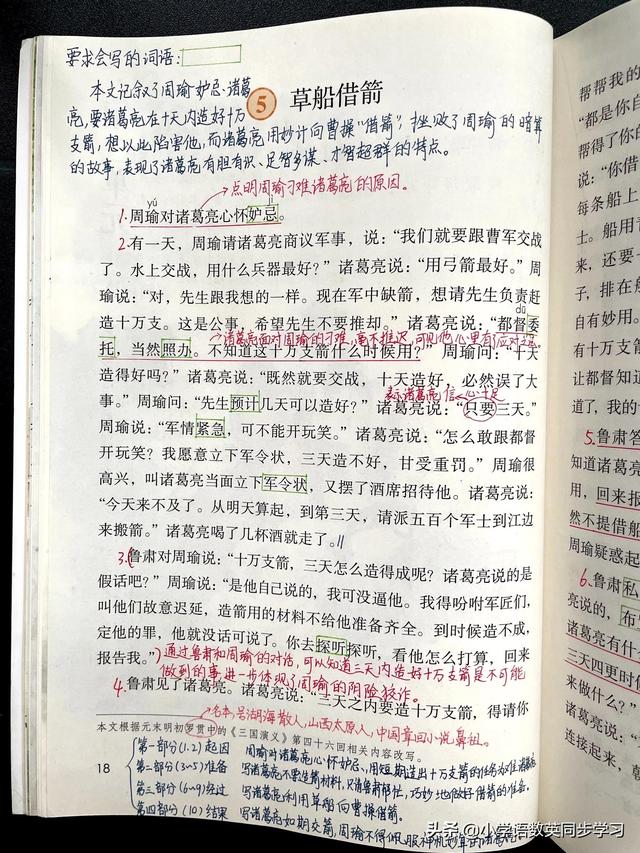 要求会写的词语：
本文记叙了周瑜妒忌诸葛
亮，要诸葛亮在十天内造好十万
支箭，想以此陷害他，而诸葛亮用妙计向曹操“借箭”，挫败了周瑜的暗算
的故事，表现了诸葛亮有胆有识、足智多谋、才智超群的特点。
5 草船借箭
点明周瑜刁难诸葛亮的原因。
yú jì
1.周瑜对诸葛亮心怀妒忌。
2.有一天，周瑜请诸葛亮商议军事，说：“我们就要跟曹军交战
了。水上交战，用什么兵器最好？”诸葛亮说：“用弓箭最好。”周
瑜说：“对，先生跟我想的一样。现在军中缺箭，想请先生负责赶
dū
造十万支。这是公事，希望先生不要推却。”诸葛亮说：“都督委
诸葛亮面对周瑜的刁难，毫不推迟，可见他心里有了应对之法。
托，当然照办。不知道这十万支箭什么时候用？”周瑜问：“十天
造得好吗？”诸葛亮说：“既然就要交战，十天造好，必然误了大
表示诸葛亮信心十足
事。”周瑜问：“先生预计几天可以造好？”诸葛亮说：“只要三天。”
周瑜说：“军情紧急，可不能开玩笑。”诸葛亮说：“怎么敢跟都督
开玩笑？我愿意立下军令状，三天造不好，甘受重罚。”周瑜很
高兴，叫诸葛亮当面立下军令状，又摆了酒席招待他。诸葛亮说：
“今天来不及了。从明天算起，到第三天，请派五百个军士到江边
来搬箭。”诸葛亮喝了几杯酒就走了。
3.鲁肃对周瑜说：“十万支箭，三天怎么造得成呢？诸葛亮说的是
假话吧？”周瑜说：“是他自己说的，我可没逼他。我得吩咐军匠们，
叫他们故意迟延，造箭用的材料不给他准备齐全。到时候造不成，
定他的罪，他就没话可说了。你去探听探听，看他怎么打算，回来
报告我。”
通过鲁肃和周瑜的对话，可以知道三天内造好十万支箭是不可能
做到的事，进一步体现了周瑜的阴险狡诈。
4.鲁肃见了诸葛亮。诸葛亮说：“三天之内要造十万支箭，得请你
名本，号湖海散人，山西太原人，中国章回小说鼻祖。
本文根据元末明初罗贯中的《三国演义》第四十六回相关内容改写。
18
第一部分（1.2）起因 周瑜对诸葛亮心怀妒忌，用短期造出十万支箭的任务为难诸葛亮
第二部分（3~5）准备 写诸葛亮不要造箭材料，只请鲁肃帮忙，巧妙地做好借箭的准备。
第三部分（6~9）经过 写诸葛亮利用草船向曹操借箭。
第四部分（10）结果 写诸葛亮如期交箭，周瑜不得不佩服
头条 @小学语数英同步学习
帮帮我的
“都是你自
帮得了你的
说：“你借
每条船上
士。船用青
来，还要一
子，排在船
自有妙用。
有十万支箭
让都督知道
了，我的计
5.鲁肃答
知道诸葛亮
用，回来报
然不提借船
周瑜疑惑起
6.鲁肃私
亮说的，布
诸葛亮有什
三天四更时
来做什么？”
诸葛亮说：“
连接起来，